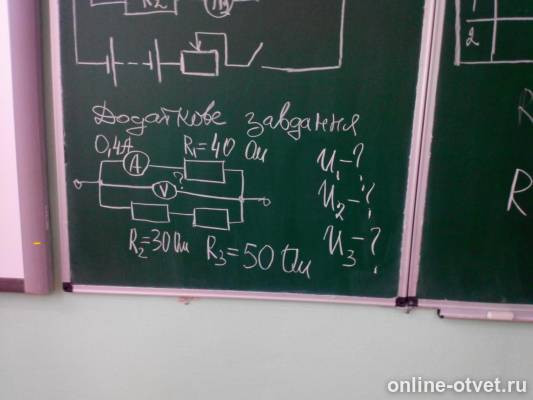 R2
1
2
Додаткове завдання
0,4А R1=40 Ом
A
V ?
R2=30 Ом R3=50 Ом
U1-?
U2-?
U3-?
R
R
online-otvet.ru